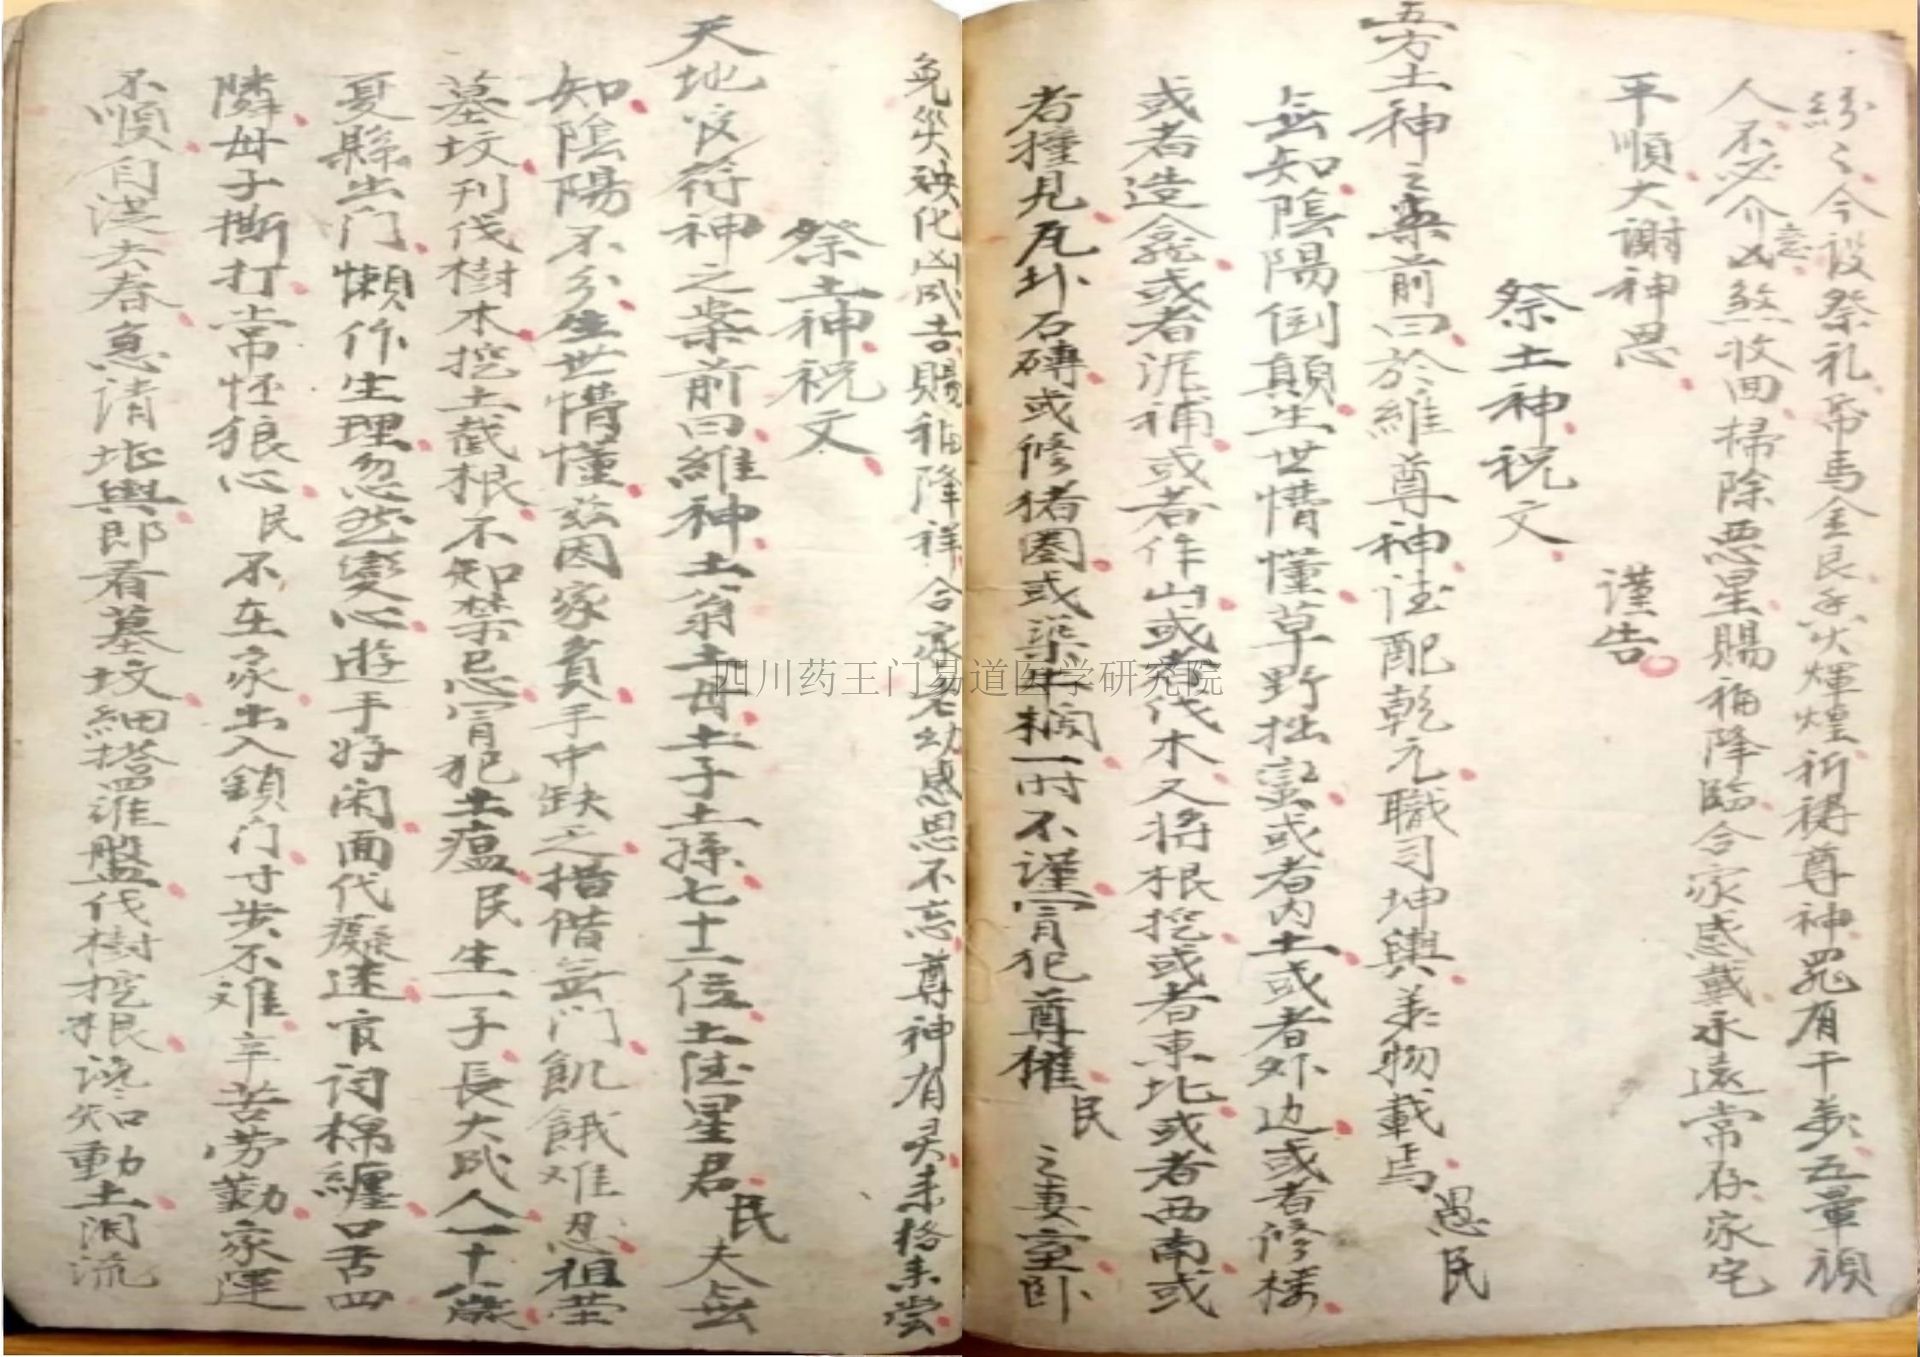 纷之今设祭礼帛马金良香火煇煌祈祷尊神罪有干义五晕须
人不必介意凶煞收回掃除恶星賜福降臨合家感戴永遠常存家宅
平順大謝神恩
謹告
祭土神祝文
五方土神之案前曰於維尊神德配乾元職司坤輿美物載焉愚民
無知隂陽倒顛生世懵懂草野拙蛮或者内土或者外边或者修楼
或者造龛或者泥補或者作山或者伐木又将根挖或者東北或者西南或
者撞見瓦卦石磚或修猪圈或梁牛栏一时不谨冒犯尊權民之妻室卧
免災殃化凶成吉賜福降祥合家老幼感恩不忘尊神有灵来格来尝
祭土神祝文
天地官符神之案前曰維神土翁土母土子土孫七十二位土德星君民夫無
知隂陽不分生世懵懂兹因家貧手中缺乏措借無门飢餓难忍祖茔
墓坟刊伐樹木挖土截根不知禁忌冒犯土瘟民生一子長大成人一十八歲
夏縣出门懒作生理忽然變心遊手好闲面代癡迷官词棉纏口舌四
隣母子撕打常怪狼心民不在家出入鎖门寸步不难辛苦劳勤家運
不順自從去春急請堪輿郎看墓坟細搭罗盤伐樹挖根说知動土泪流
四川药王门易道医学研究院